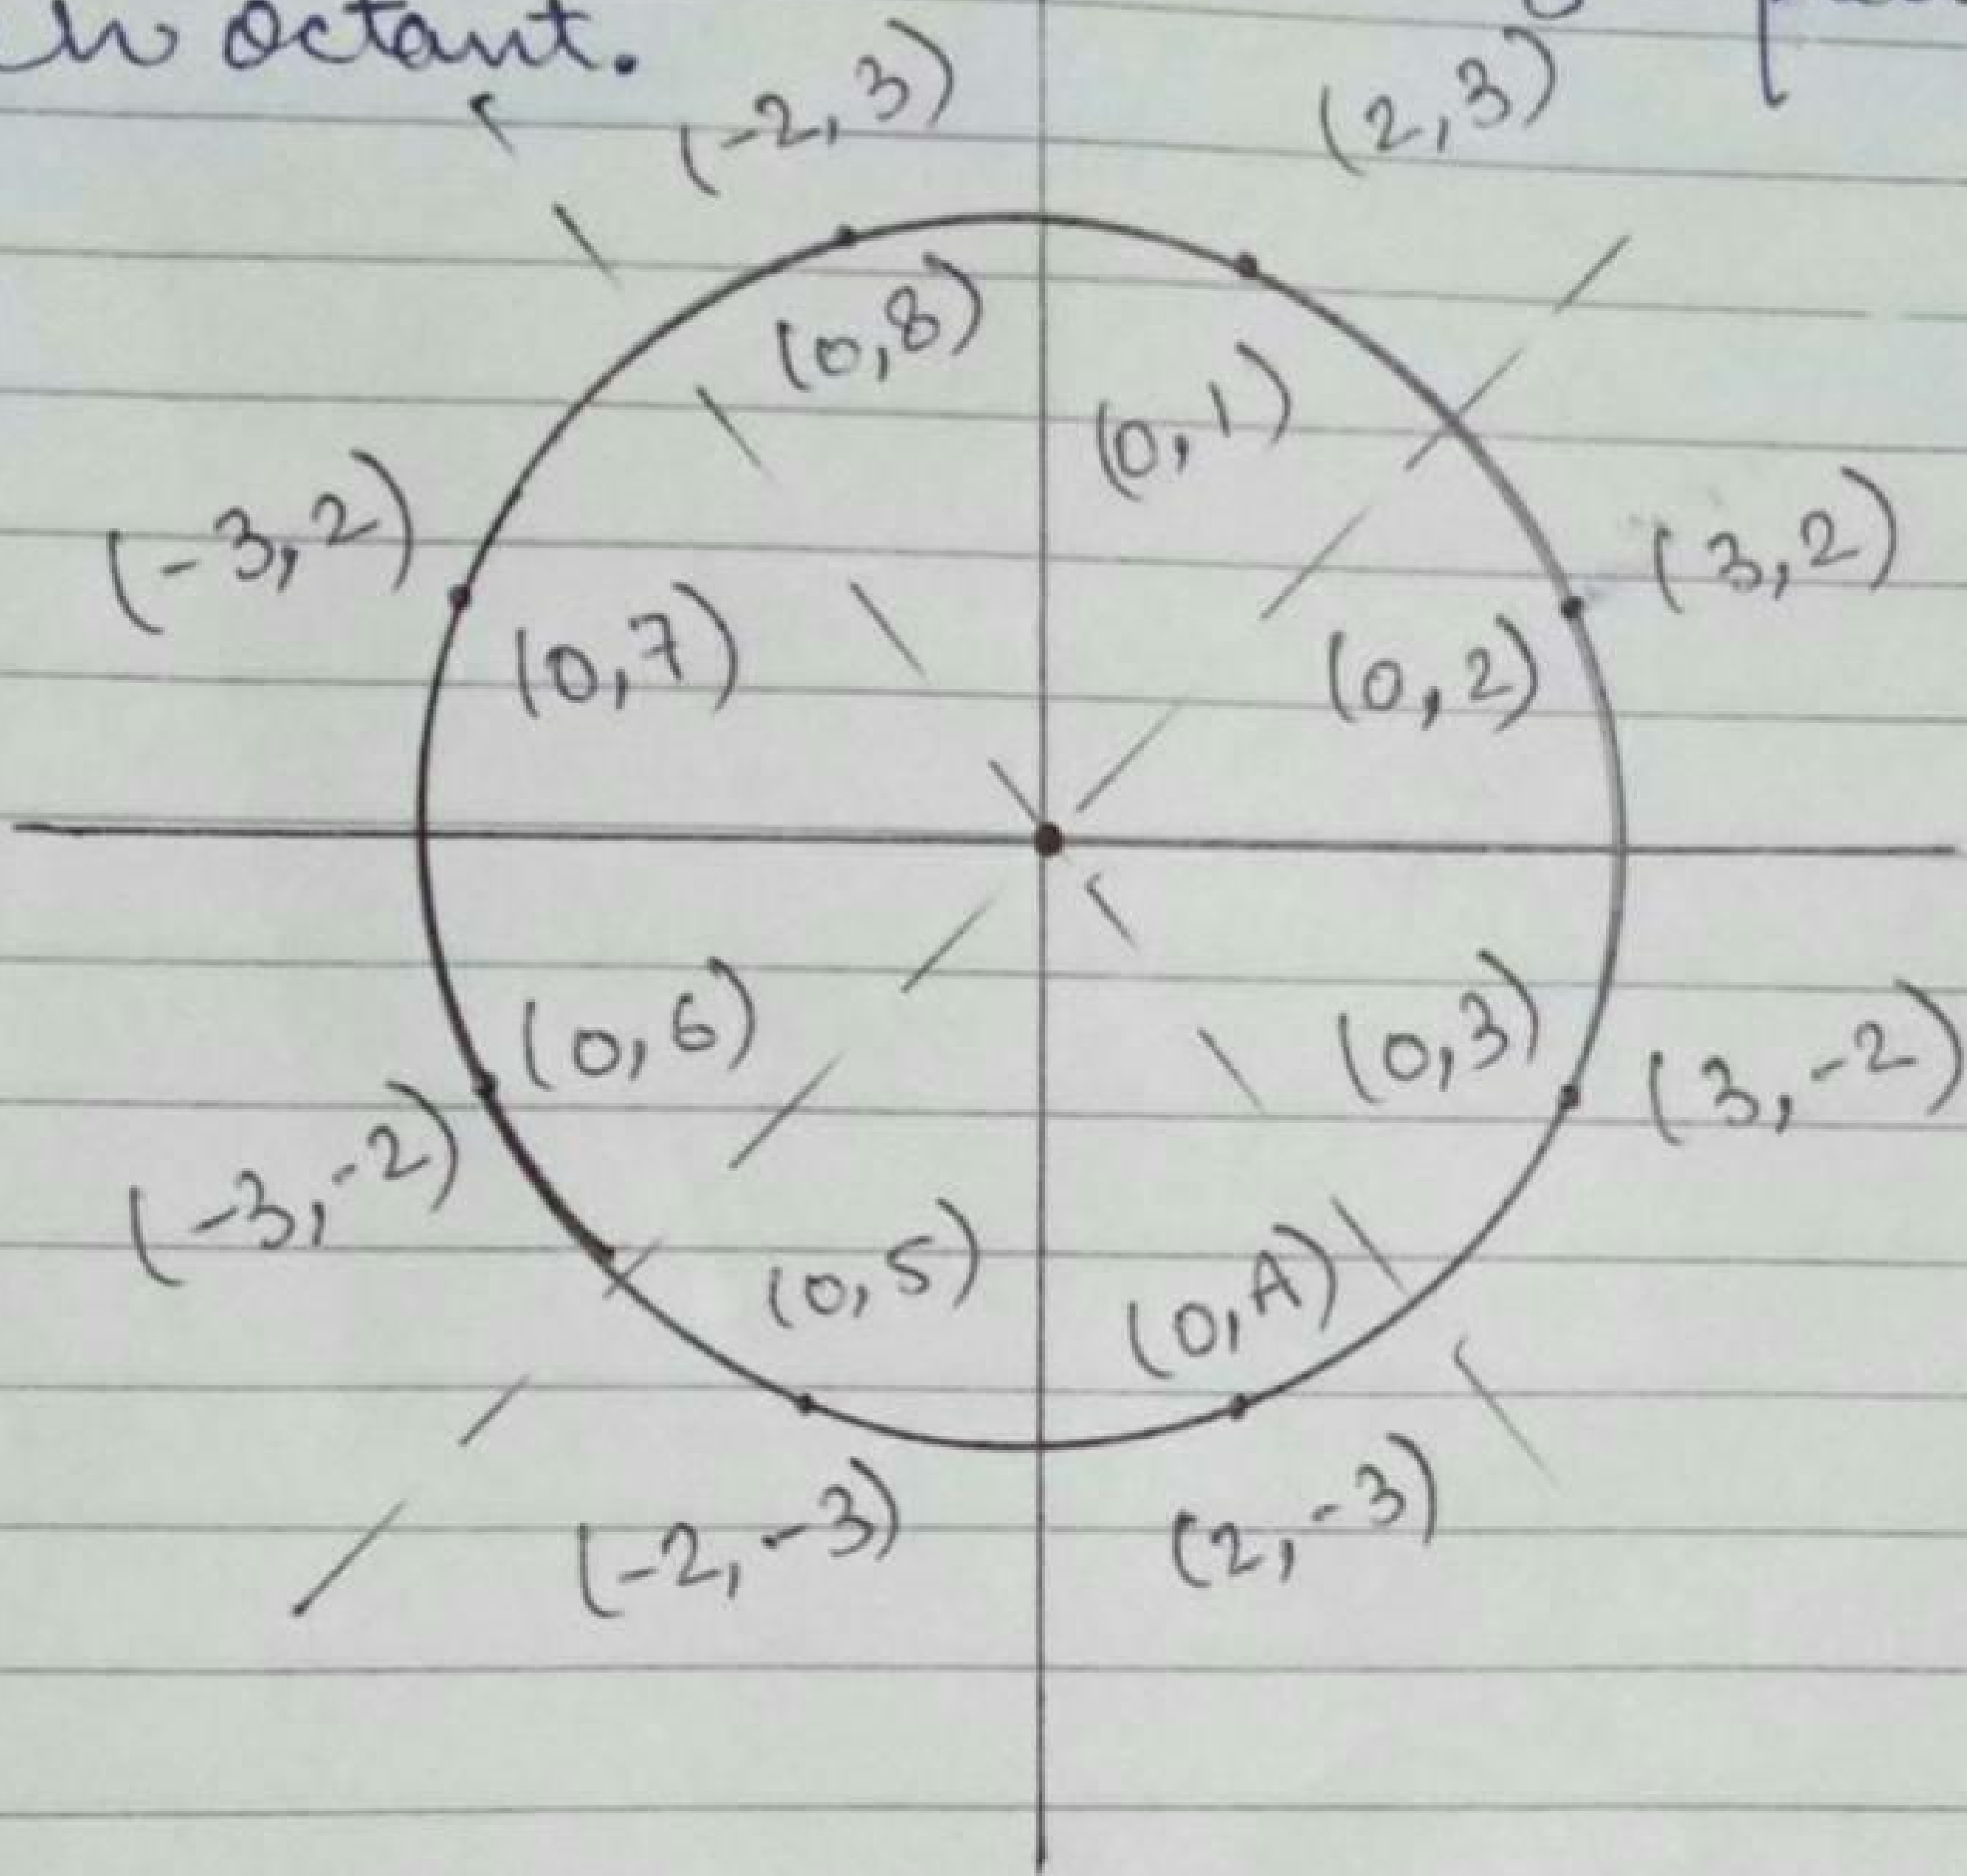 octant.
(-2, 3) (2, 3)
(0, 8) (0, 1)
(-3, 2) (3, 2)
(0, 7) (0, 2)
(0, 6) (0, 3)
(-3, -2) (3, -2)
(0, 5) (0, 4)
(-2, -3) (2, -3)